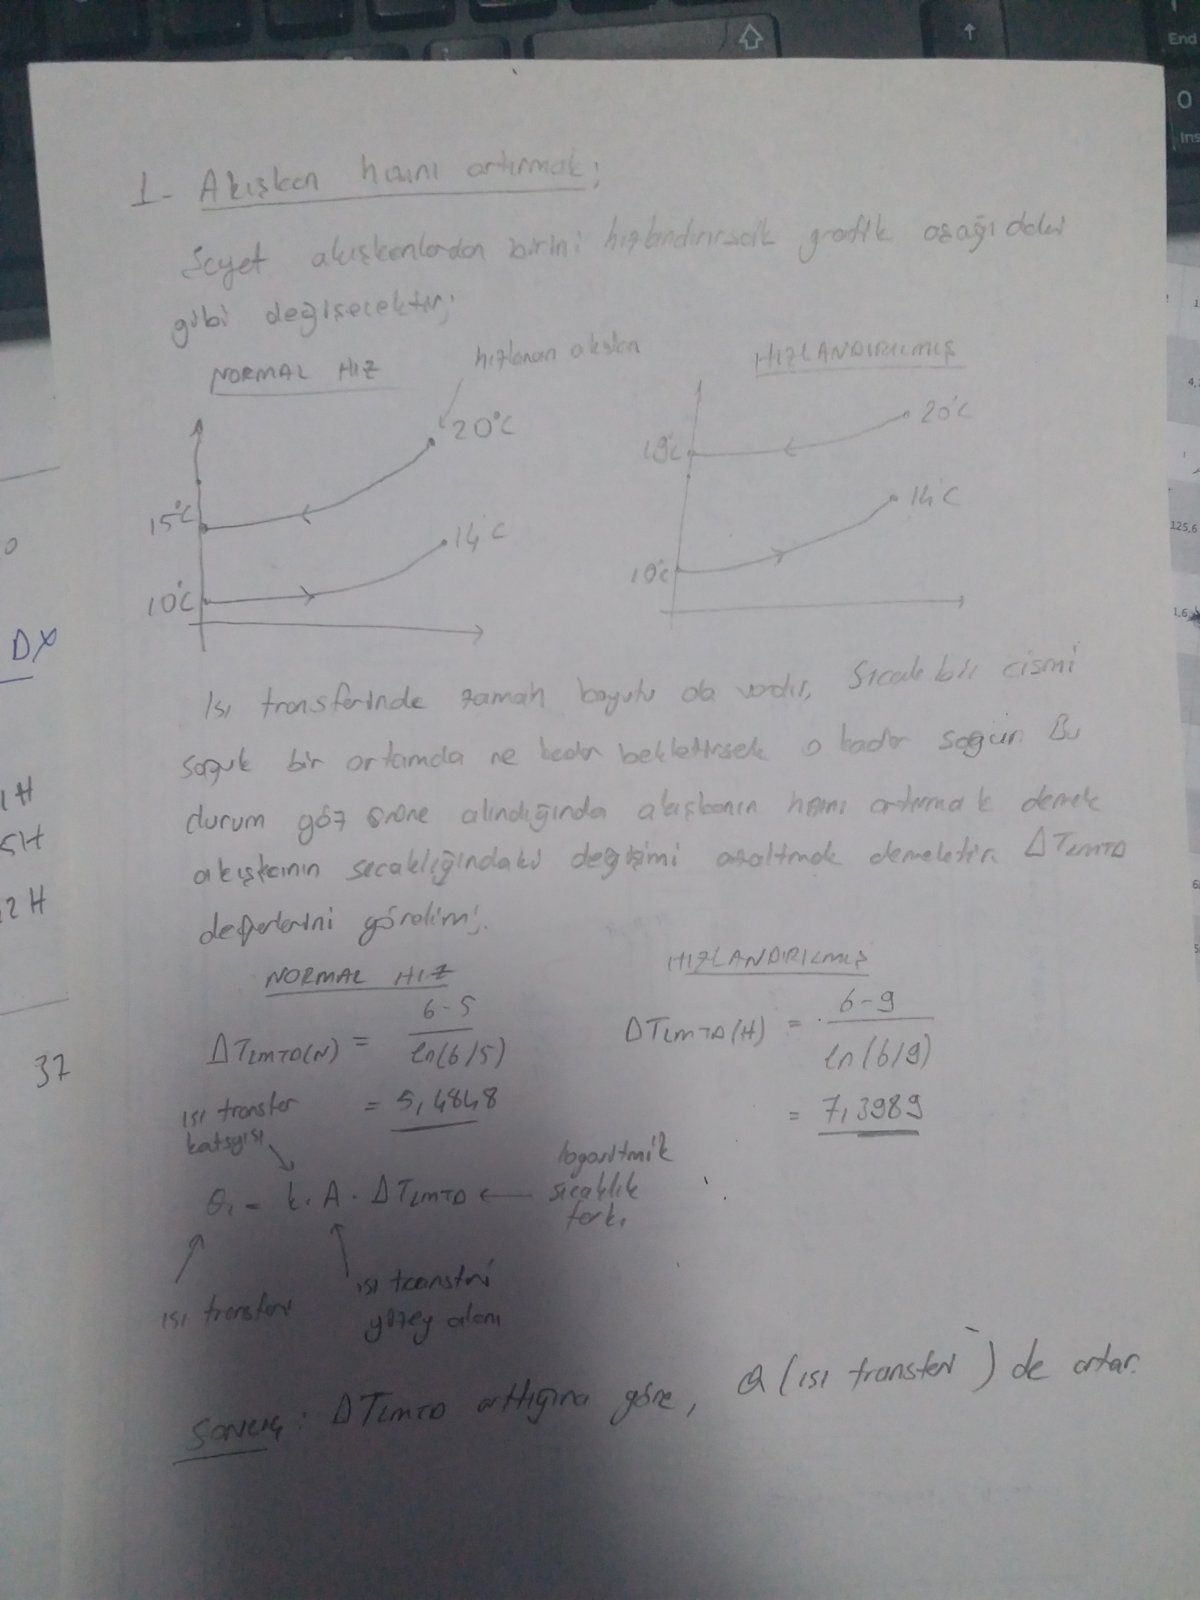 1- Akışkan hızını artırmak;
Şayet akışkanlardan birini hızlandırırsak grafik aşağıdaki
gibi değişecektir;
NORMAL HIZ
hızlanan akışkan
HIZLANDIRILMIŞ
20°C
15°C
14°C
10°C
20°C
19°C
14°C
10°C
Isı transferinde zaman boyutu da vardır, Sıcak bir cismi
soğuk bir ortamda ne kadar bekletirsek o kadar soğur. Bu
durum göz önüne alındığında akışkanın hızını artırmak demek
akışkanın sıcaklığındaki değişimi azaltmak demektir. ΔTLMTD
değerlerini görelim;
NORMAL HIZ
ΔTLMTD(N) = 6-5 / ln(6/5)
= 5,4848
HIZLANDIRILMIŞ
ΔTLMTD(H) = 6-9 / ln(6/9)
= 7,3989
ısı transfer
katsyısı
Q = k. A. ΔTLMTD
logaritmik
sıcaklık
farkı
ısı transferi
ısı transferi
yüzey alanı
SONUÇ: ΔTLMTD arttığına göre, Q (ısı transferi) de artar.
DX
1H
5H
2H
37
End
0
Ins
4,
125,6
1,6